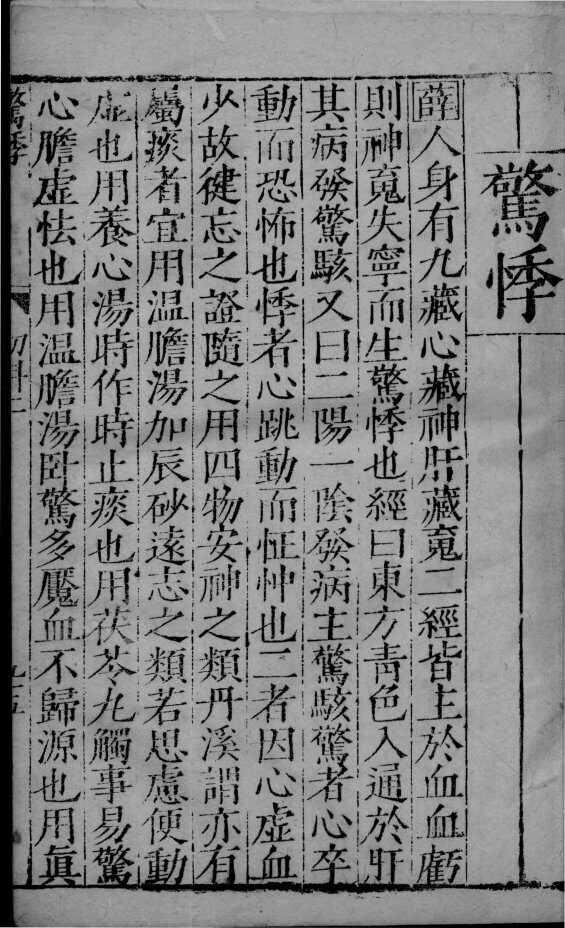 驚悸
薛人身有九藏心藏神肝藏䰟二經皆主於血血虧
則神䰟失寧而生驚悸也經曰東方青色入通於肝
其病發驚駭又曰二陽一陰發病主驚駭驚者心卒
動而恐怖也悸者心跳動而怔忡也二者因心虛血
少故徤忘之證隨之用四物安神之類丹溪謂亦有
屬痰者宜用温膽湯加辰砂遠志之類若思慮便動
虛也用養心湯時作時止痰也用茯苓丸觸事易驚
心膽虛怯也用温膽湯卧驚多魘血不歸源也用眞
驚悸